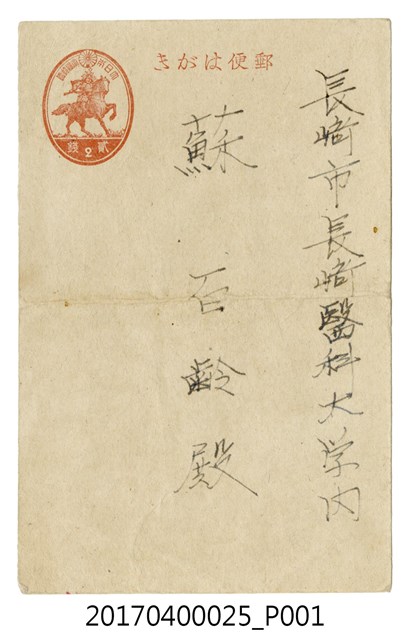 郵便はがき
大日本帝國
貳
2
錢
長崎市長崎醫科大学内
蘇百齢殿
20170400025_P001